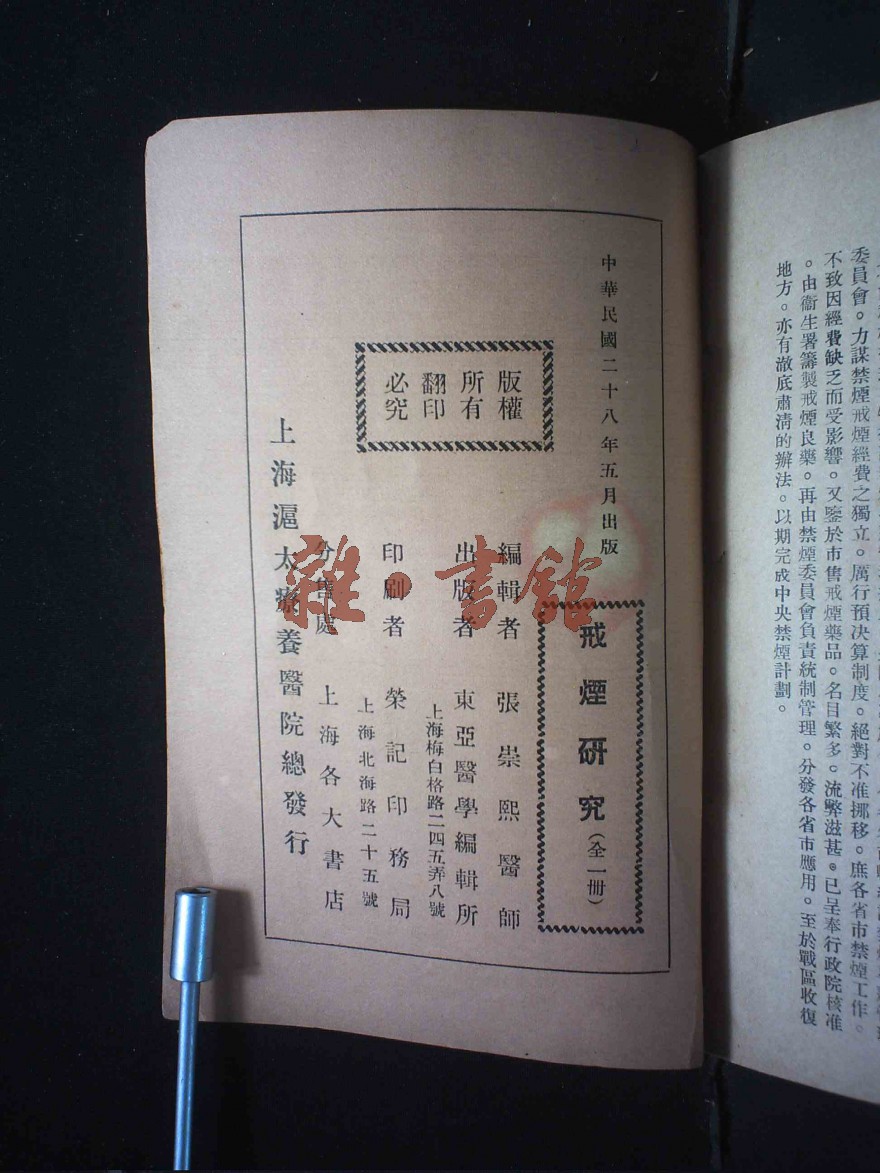 委員會。力謀禁煙戒煙經費之獨立。厲行預決算制度。絕對不准挪移。庶各省市禁煙工作。
不致因經費缺乏而受影響。又鑒於市售戒煙藥品。名目繁多。流弊滋甚。已呈奉行政院核准
。由衞生署籌製戒煙良藥。再由禁煙委員會負責統制管理。分發各省市應用。至於戰區收復
地方。亦有澈底肅淸的辦法。以期完成中央禁煙計劃。
中華民國二十八年五月出版
戒煙研究(全一册)
版權
所有
翻印
必究
編輯者 張崇熙醫師
出版者 東亞醫學編輯所
上海梅白格路二四五弄八號
印刷者 榮記印務局
上海北海路二十五號
分售處 上海各大書店
上海滬太療養醫院總發行
雜·書館